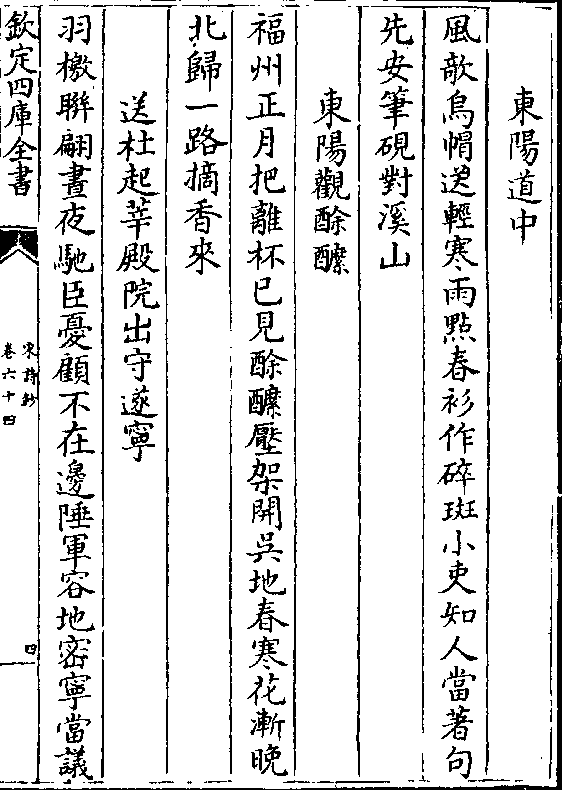 東陽道中
風敵烏帽送輕寒雨點春衫作碎斑小吏知人當著句
先安筆硯對溪山
東陽觀酴醿
福州正月把離杯已見酴醿壓架開吳地春寒花漸晚
北歸一路摘香來
送杜起莘殿院出守遂寧
羽檄聨翩晝夜馳臣憂顧不在邊陲軍容地密寧當議
欽定四庫全書
宋詩鈔
卷六十四
四